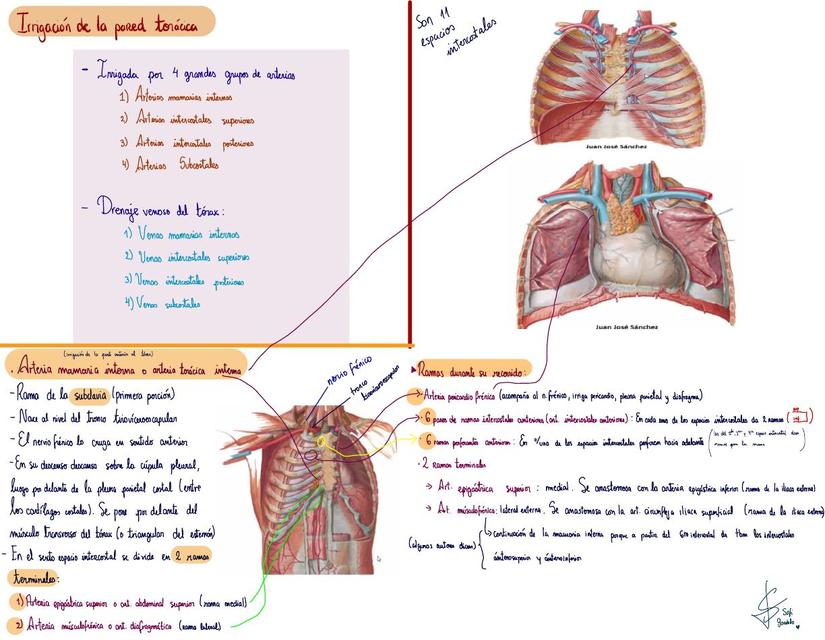 Irrigación de la pared torácica
- Irrigada por 4 grandes grupos de arterias
1) Arterias mamarias internas
2) Arterias intercostales superiores
3) Arterias intercostales posteriores
4) Arterias Subcostales
- Drenaje venoso del tórax:
1) Venas mamarias internas
2) Venas intercostales superiores
3) Venas intercostales posteriores
4) Venas subcostales
Son 11
espacios
intercostales
Juan José Sánchez
Juan José Sánchez
(irrigación de la pared anterior del tórax)
. Arteria mamaria interna o arteria torácica interna
- Rama de la subclavia (primera porción)
- Nace al nivel del tronco tirovicerroescapular
- El nervio frénico lo cruza en sentido anterior
- En su descenso descansa sobre la cúpula pleural,
luego por delante de la pleura parietal costal (entre
los cartílagos costales). Se pone por delante del
músculo transverso del tórax (o triangular del esternón)
- En el sexto espacio intercostal se divide en 2 ramas
terminales:
1) Arteria epigástrica superior o art. abdominal superior (rama medial)
2) Arteria musculofrénica o art. diafragmática (rama lateral)
nervio frénico
tronco
Ramas durante su recorrido:
Arteria pericardio frénica (acompaña al n. frénico, irriga pericardio, pleura parietal y diafragma)
6 pares de ramas intercostales anteriores (art. intercostales anteriores): En cada uno de los espacios intercostales da 2 ramas
6 ramas perforantes anteriores: En c/uno de los espacios intercostales perforan hacia adelante
. 2 ramas terminales
→ Art. epigástrica superior: medial. Se anastomosa con la arteria epigástrica inferior (rama de la iliaca externa)
→ Art. musculofrénica: lateral externa. Se anastomosa con la art. circunfleja iliaca superficial (rama de la iliaca externa)
(algunos autores dicen)
continuación de la mamaria interna porque a partir del 6to intercostal da tbm las intercostales
anterosuperior y anteroinferior
Sofi